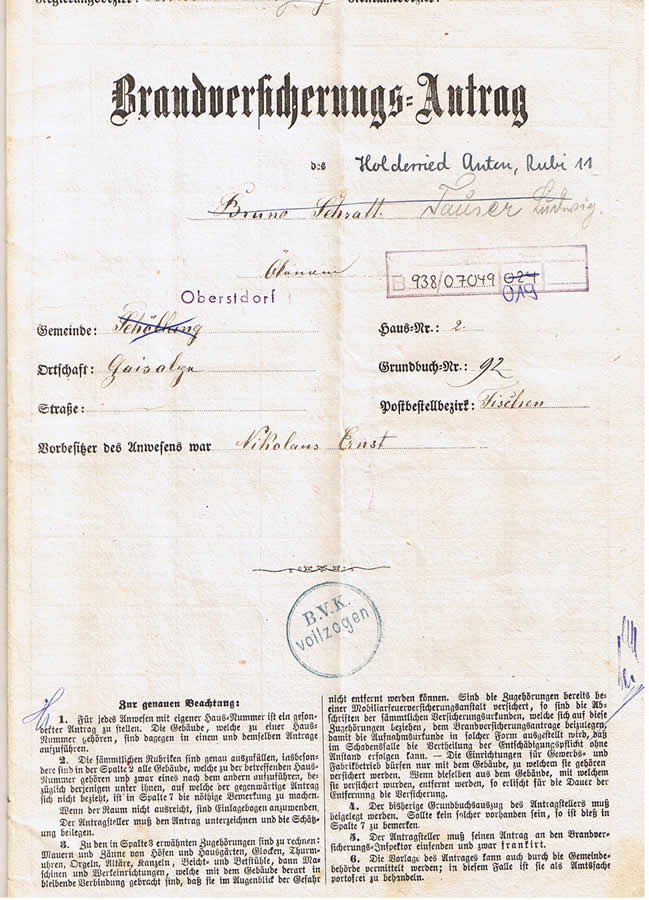 Brandversicherungs=Antrag
des Holderried Anton, Rubi 11
Bruno Schratt. Tauser Ludwig.
Ökonom
938/07049 024
019
Oberstdorf
Gemeinde: Schöllang
Haus=Nr.: 2.
Ortschaft: Gaisalpe
Grundbuch=Nr.: 92
Straße:
Postbestellbezirk: Fischen
Vorbesitzer des Anwesens war Nikolaus Ernst
B.V.K.
vollzogen
Zur genauen Beachtung:
1. Für jedes Anwesen mit eigener Haus=Nummer ist ein geson=
derter Antrag zu stellen. Die Gebäude, welche zu einer Haus=
Nummer gehören, sind dagegen in einem und demselben Antrage
aufzuführen.
2. Die sämmtlichen Rubriken sind genau auszufüllen, insbeson=
dere sind in der Spalte 2 alle Gebäude, welche zu der betreffenden Haus=
Nummer gehören und zwar eines nach dem andern aufzuführen, be=
züglich derjenigen unter ihnen, auf welche der gegenwärtige Antrag
sich nicht bezieht, ist in Spalte 7 die nöthige Bemerkung zu machen.
Wenn der Raum nicht ausreicht, sind Einlagebogen anzuwenden.
Der Antragsteller muß den Antrag unterzeichnen und die Schät=
zung beilegen.
3. Zu den in Spalte 3 erwähnten Zugehörungen sind zu rechnen:
Mauern und Zäune von Höfen und Hausgärten, Glocken, Thurm=
uhren, Orgeln, Altäre, Kanzeln, Beicht= und Betstühle, dann Ma=
schinen und Werkeinrichtungen, welche mit dem Gebäude derart in
bleibende Verbindung gebracht sind, daß sie im Augenblick der Gefahr
nicht entfernt werden können. Sind die Zugehörungen bereits be=
einer Mobiliarfeuerversicherungsanstalt versichert, so sind die Ab=
schriften der sämmtlichen Versicherungsurkunden, welche sich auf diese
Zugehörungen beziehen, dem Brandversicherungsantrage beizulegen,
damit die Aufnahmsurkunde in solcher Form ausgestellt wird, daß
im Schadensfalle die Vertheilung der Entschädigungspflicht ohne
Anstand erfolgen kann. — Die Einrichtungen für Gewerbs= und
Fabrikbetrieb dürfen nur mit dem Gebäude, zu welchem sie gehören
versichert werden. Wenn dieselben aus dem Gebäude, mit welchem
sie versichert wurden, entfernt werden, so erlischt für die Dauer der
Entfernung die Versicherung.
4. Der bisherige Grundbuchsauszug des Antragstellers muß
beigelegt werden. Sollte kein solcher vorhanden sein, so ist dieß in
Spalte 7 zu bemerken.
5. Der Antragsteller muß seinen Antrag an den Brandver=
sicherungs=Inspektor einsenden und zwar frankirt.
6. Die Vorlage des Antrages kann auch durch die Gemeinde=
behörde vermittelt werden; in diesem Falle ist sie als Amtssache
portofrei zu behandeln.